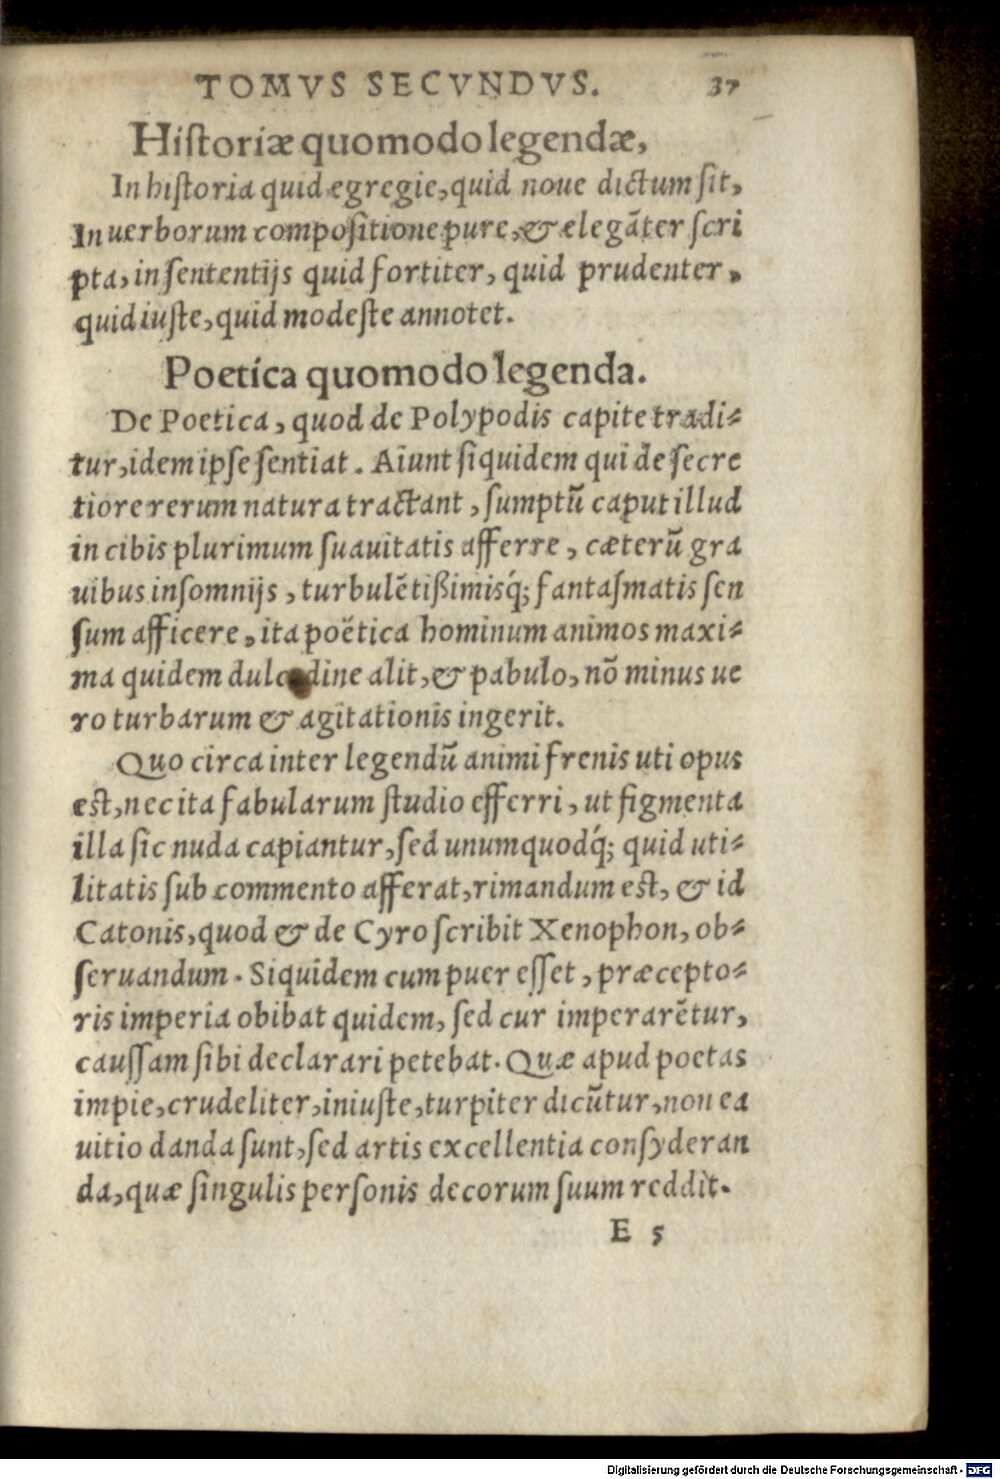 TOMVS SECVNDVS. 37
Hiſtoriæ quomodo legendæ,
In hiſtoria quid egregie, quid noue dictum ſit,
In uerborum compoſitione pure, & elegāter ſcri
pta, in ſententijs quid fortiter, quid prudenter,
quid iuſte, quid modeſte annotet.
Poetica quomodo legenda.
De Poetica, quod de Polypodis capite tradi-
tur, idem ipſe ſentiat. Aiunt ſiquidem qui de ſecre
tiore rerum natura tractant, ſumptū caput illud
in cibis plurimum ſuauitatis afferre, cæterū gra
uibus inſomnijs, turbulētißimisq́; fantaſmatis ſen
ſum afficere, ita poëtica hominum animos maxi-
ma quidem dulcedine alit, & pabulo, nō minus ue
ro turbarum & agitationis ingerit.
Quo circa inter legendū animi frenis uti opus
est, nec ita fabularum ſtudio efferri, ut figmenta
illa ſic nuda capiantur, ſed unumquodq́; quid uti-
litatis ſub commento afferat, rimandum est, & id
Catonis, quod & de Cyro ſcribit Xenophon, ob-
ſeruandum. Siquidem cum puer eſſet, præcepto-
ris imperia obibat quidem, ſed cur imperarētur,
cauſſam ſibi declarari petebat. Quæ apud poetas
impie, crudeliter, iniuſte, turpiter dicūtur, non ea
uitio danda ſunt, ſed artis excellentia conſyderan
da, quæ ſingulis perſonis decorum ſuum reddit.
E 5
Digitalisierung gefördert durch die Deutsche Forschungsgemeinschaft - DFG